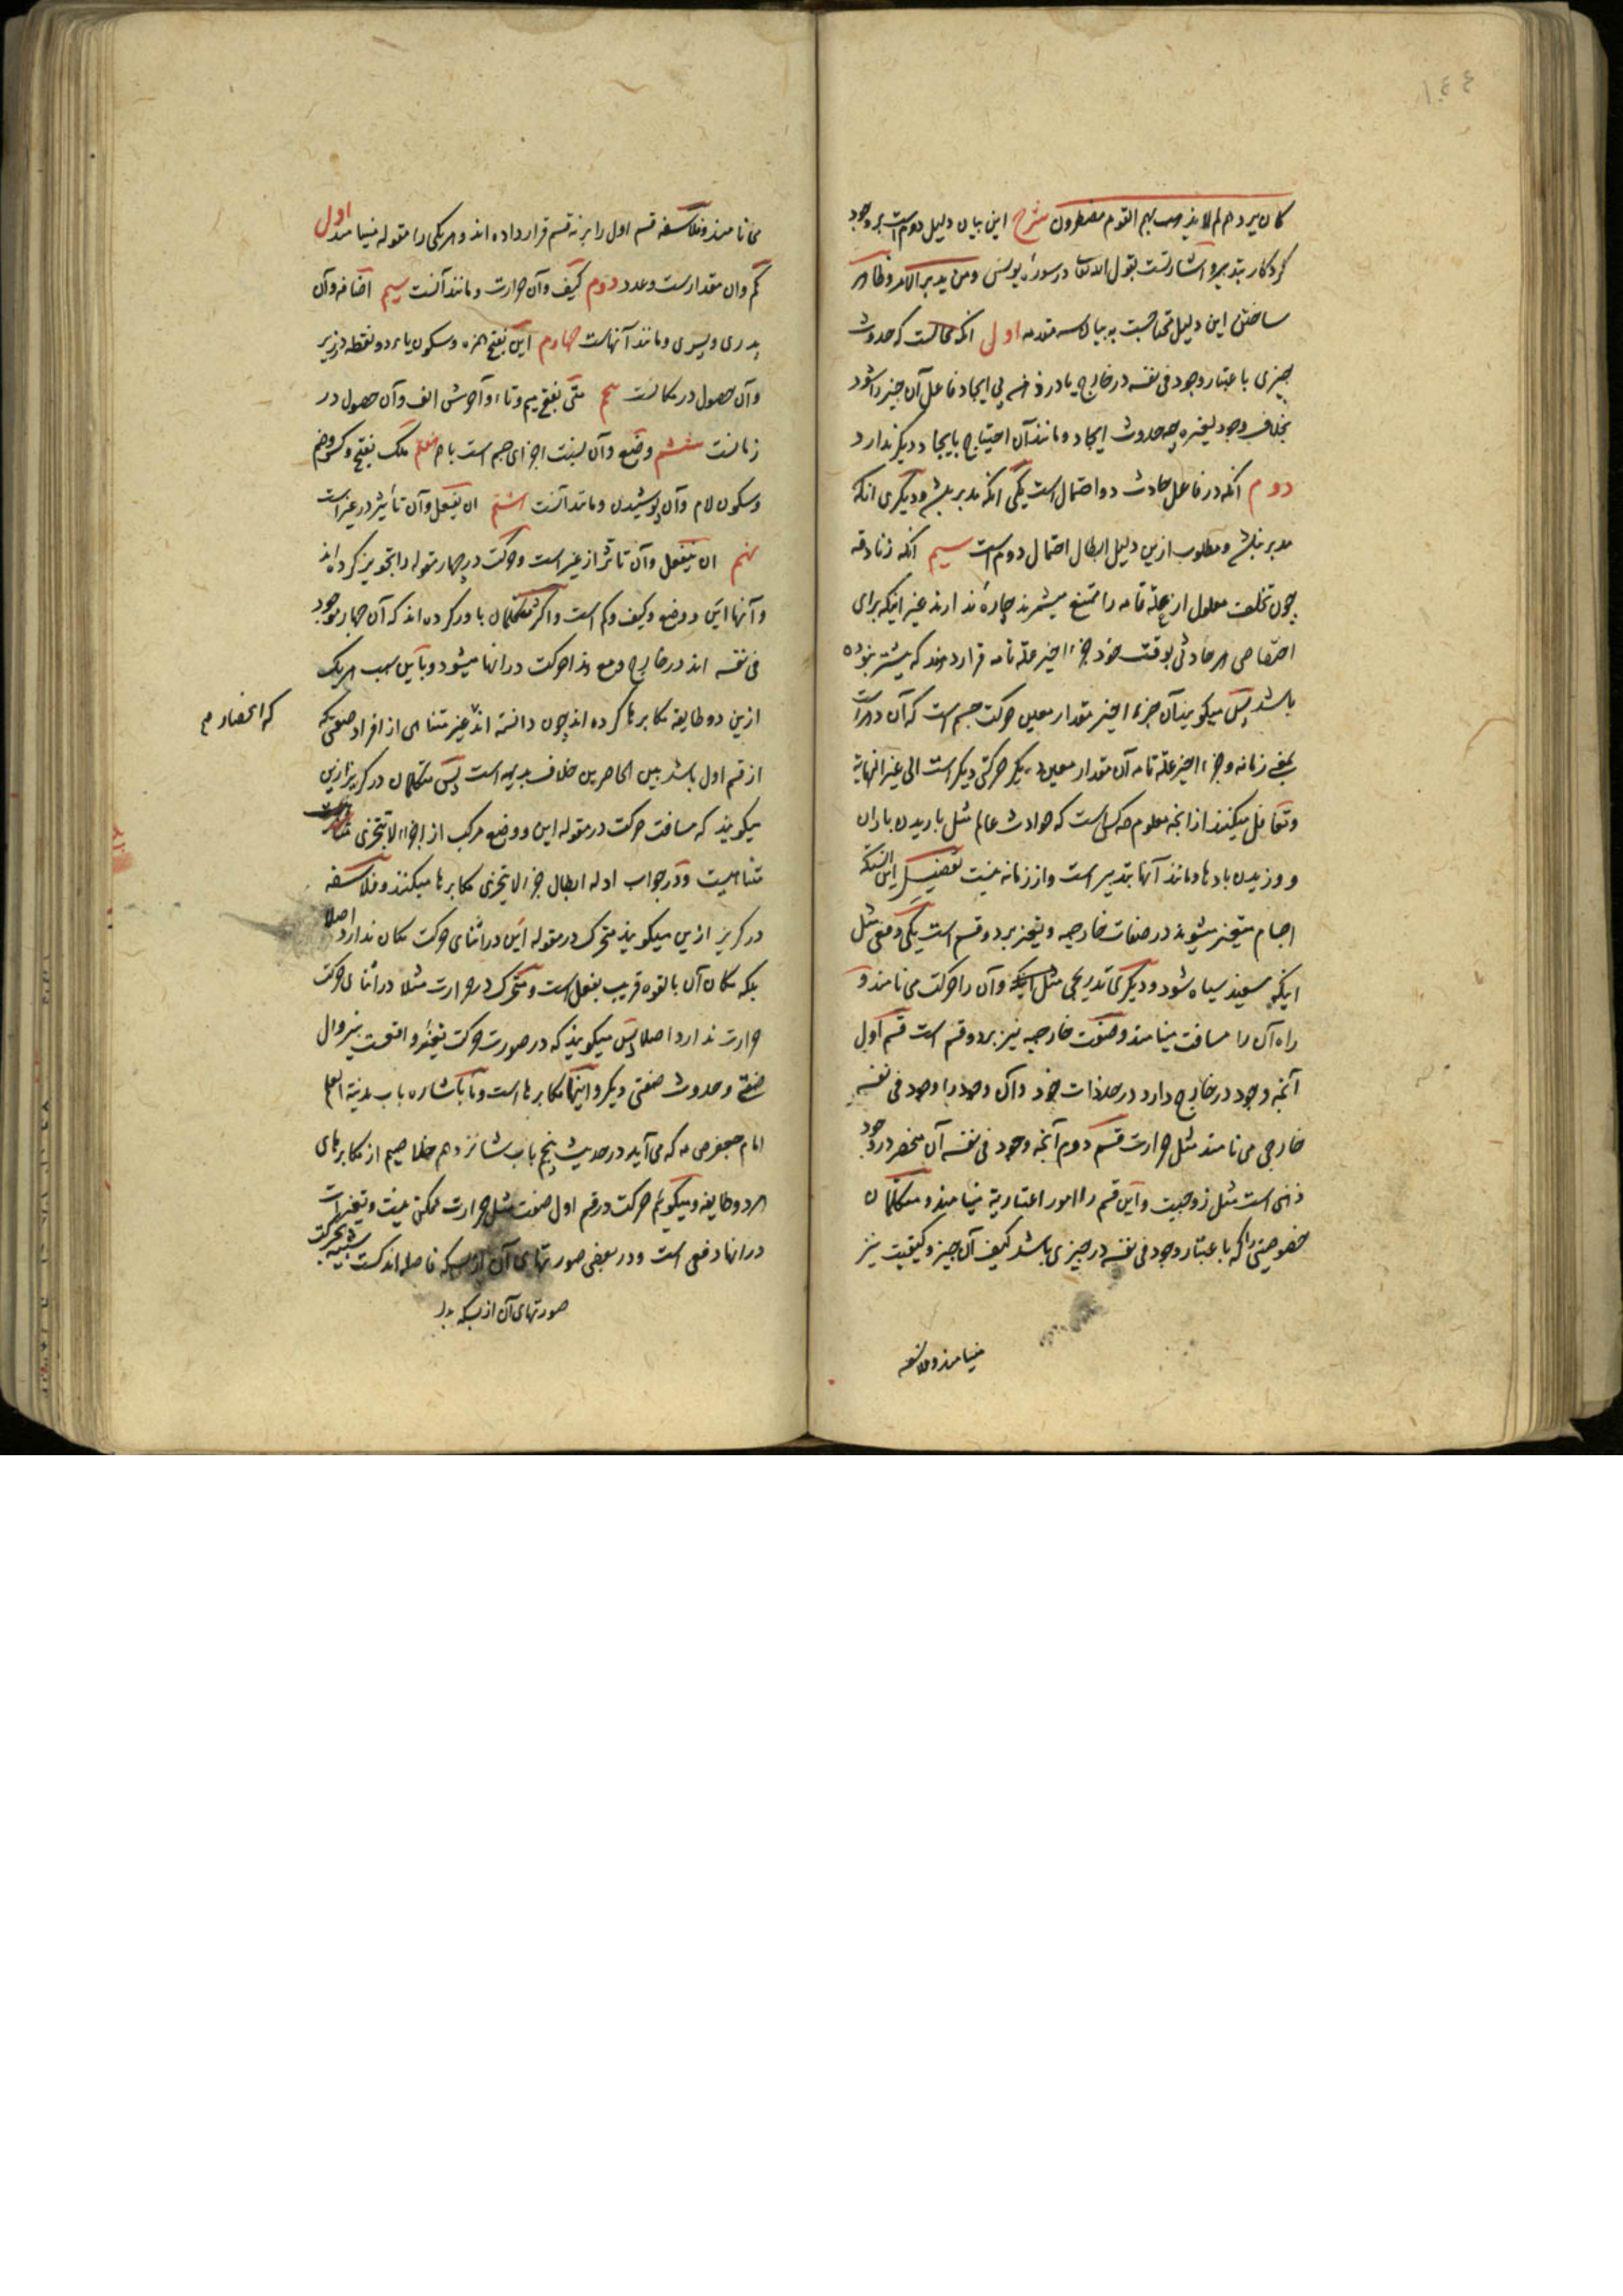 ١٤٤
کان یردهم لم لا یذهب بهم القوم مضطرون شرح این بیان دلیل دوم است بر وجود
کردکار بتدبیر و اشارتست بقول الله تعالی در سوره یونس و من یدبر الامر و ظاهر
ساختن این دلیل محتاجست به بیان سه مقدمه اول انکه محالست که حدوث
چیزی باعتبار وجود فی نفسه در خارج یا در ذهن بی ایجاد فاعل آن چیز را شود
بخلاف وجود لغیره چه حدوث ایجاد و مانند آن احتیاج بایجاد دیگر ندارد
دوم انکه در فاعل حادث دو احتمال است یکی انکه مدبر باشد و دیگری انکه
مدبر نباشد و مطلوب ازین دلیل ابطال احتمال دوم است سیم انکه زنادقه
چون تخلف معلول از علة تامه را ممتنع میشمرند چاره ندارند غیر اینکه برای
اختصاص هر حادثی بوقت خود جزء اخیر علة تامه قرار دهند که پیشتر نبوده
باشد پس میکویند آن جزء اخیر مقدار معین حرکت جسم است که آن دهر است
بمعنی زمانه و جزء اخیر علة تامه آن مقدار معین دیگر حرکتی دیگر است الی غیر النهایة
و تغافل میکنند از انچه معلوم هر کس است که حوادث عالم مثل باریدن باران
و وزیدن بادها و مانند آنها بتدبیر است و از زمانه نیست تفصیل این آنست که
اجسام متغیر میشوند در صفات خارجیه و تغیر بر دو قسم است یکی دفعی مثل
اینکه سفید سیاه شود و دیگری تدریجی مثل اینکه و آن را حرکت می نامند و
راه آن را مسافت مینامند و صفت خارجیه نیز بر دو قسم است قسم اول
آنچه وجود در خارج دارد در حد ذات خود و آن وجود را وجود فی نفسه
خارجی می نامند مثل حرارت قسم دوم آنچه وجود فی نفسه آن منحصر در وجود
ذهنی است مثل زوجیت و این قسم را امور اعتباریة مینامند و متکلمان
خصوصیتی را که باعتبار وجود فی نفسه در چیزی باشد کیف آن چیز و کیفیت نیز
مینامند و فلاسفه
می نامند و فلاسفه قسم اول را بر نه قسم قرار داده اند و هر یکی را مقوله مینامند اول
کم و ان مقدار است و عدد دوم کیف و آن حرارت و مانند آنست سیم اضافه و آن
پدری و پسری و مانند آنهاست چهارم این بفتح همزه و سکون یاء دو نقطه در زیر
و آن حصول در مکانست پنجم متی بفتح میم و تاء و آخرش الف و آن حصول در
زمانست ششم وضع و آن نسبت اجزای جسم است با هم هفتم ملک بفتح و کسر و ضم
و سکون لام و آن پوشیدن و مانند آنست هشتم ان یفعل و آن تأثیر در غیر است
نهم ان ینفعل و آن تاثر از غیر است و حرکت در چهار مقوله را تجویز کرده اند
و آنها این و وضع و کیف و کم است و اکثر متکلمان باور کرده اند که آن چهار موجود
فی نفسه اند در خارج و مع هذا حرکت در انها میشود و باین سبب هر یک
ازین دو طایفه مکابرها کرده اند چون دانسته اند غیر متناهی از افراد صفتی که
که انحصار م
از قسم اول باشد بین الحاصرین خلاف بدیهه است پس متکلمان در گریز ازین
میکویند که مسافت حرکت در مقوله این و وضع مرکب از اجزاء لا تتجزی
متناهیست و در جواب ادله ابطال جزء لا یتجزی مکابرها میکنند و فلاسفه
در گریز ازین میکویند متحرک در مقوله این در اثنای حرکت مکان ندارد اصلا
بلکه مکان آن بالقوه قریب بفعل است و متحرک در حرارت مثلا در اثنای حرکت
حرارت ندارد اصلا پس میکویند که در صورت حرکت تغیر واقعست بی زوال
صفتی و حدوث صفتی دیگر و اینها مکابرها است و ما باشاره باب مدینة العلم
امام جعفر ص ع که می آید در حدیث پنجم باب شانزدهم خلاصیم از مکابرهای
هر دو طایفه و میکوییم حرکت در قسم اول صفت مثل حرارت ممکن نیست و تغیرات
در انها دفعی است و در بعضی صورتهای آن از بسکه فاصله اندکست شبیه بحرکت
صورتهای آن از بسکه